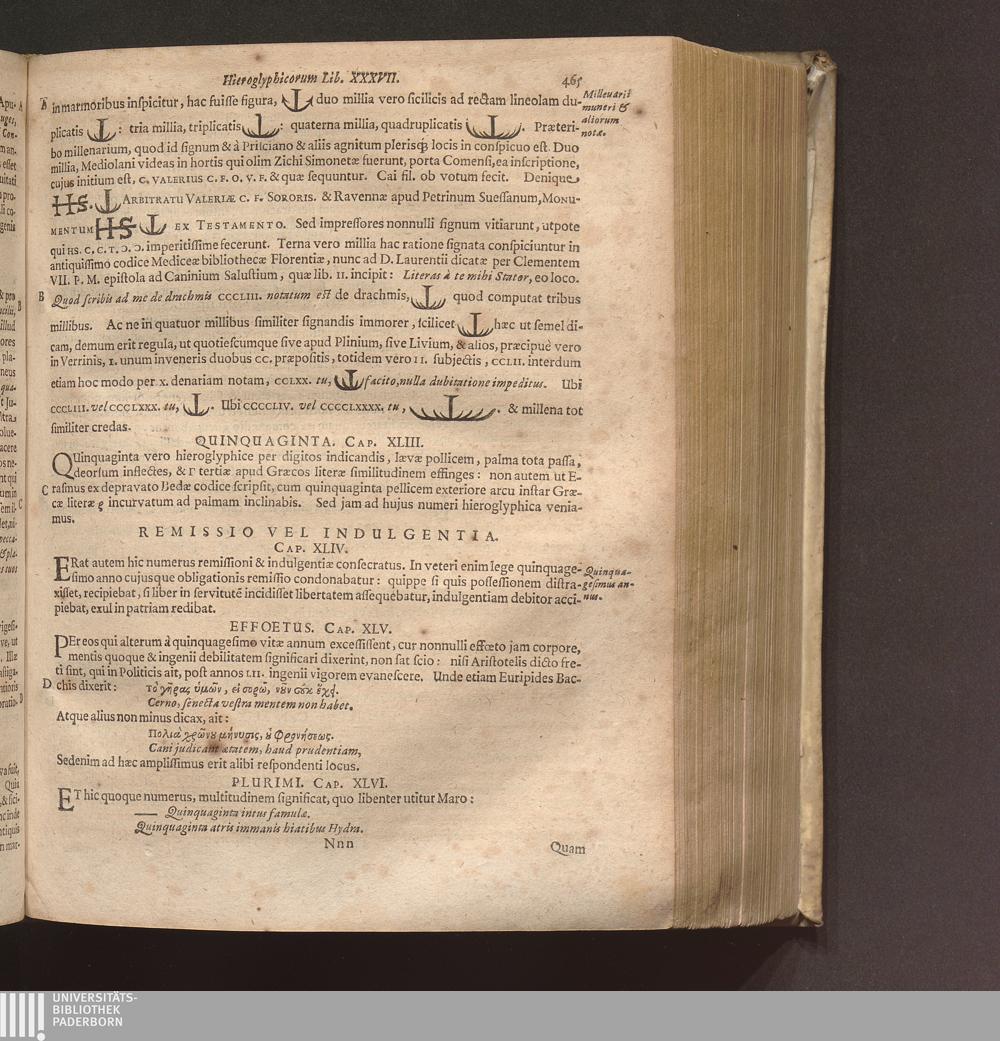 Hieroglyphicorum Lib. XXXVII. 465
A in marmoribus inspicitur, hac fuisse figura, duo millia vero sicilicis ad rectam lineolam du-
plicatis : tria millia, triplicatis : quaterna millia, quadruplicatis . Præteri-
Millenarii
numeri &
aliorum
notæ.
bo millenarium, quod id signum & à Prisciano & aliis agnitum plerisq; locis in conspicuo est. Duo
millia, Mediolani videas in hortis qui olim Zichi Simonetæ fuerunt, porta Comensi, ea inscriptione,
cujus initium est, C. VALERIUS C. F. O. V. F. & quæ sequuntur. Cai fil. ob votum fecit. Denique
HS. ARBITRATU VALERIÆ C. F. SORORIS. & Ravennæ apud Petrinum Suessanum, MONU-
MENTUM HS EX TESTAMENTO. Sed impressores nonnulli signum vitiarunt, utpote
qui HS. C. C. T. Ɔ. Ɔ. imperitissime fecerunt. Terna vero millia hac ratione signata conspiciuntur in
antiquissimo codice Mediceæ bibliothecæ Florentiæ, nunc ad D. Laurentii dicatæ per Clementem
VII. P. M. epistola ad Caninium Salustium, quæ lib. II. incipit: Literas à te mihi Stator, eo loco.
B Quod scribis ad me de drachmis CCCLIII. notatum est de drachmis, quod computat tribus
millibus. Ac ne in quatuor millibus similiter signandis immorer, scilicet hæc ut semel di-
cam, demum erit regula, ut quotiescumque sive apud Plinium, sive Livium, & alios, præcipuè vero
in Verrinis, I. unum inveneris duobus CC. præpositis, totidem vero II. subjectis, CCLII. interdum
etiam hoc modo per X. denariam notam, CCLXX. tu, facito, nulla dubitatione impeditus. Ubi
CCCLIII. vel CCCLXXX. tu, . Ubi CCCCLIV. vel CCCCLXXXX. tu, . & millena tot
similiter credas.
QUINQUAGINTA. CAP. XLIII.
QUinquaginta vero hieroglyphice per digitos indicandis, lævæ pollicem, palma tota passa,
deorsum inflectes, & Γ tertiæ apud Græcos literæ similitudinem effinges: non autem ut E-
C rasmus ex depravato Bedæ codice scripsit, cum quinquaginta pellicem exteriore arcu instar Græ-
cæ literæ ϛ incurvatum ad palmam inclinabis. Sed jam ad hujus numeri hieroglyphica venia-
mus.
REMISSIO VEL INDULGENTIA.
CAP. XLIV.
ERat autem hic numerus remissioni & indulgentiæ consecratus. In veteri enim lege quinquage-
simo anno cujusque obligationis remissio condonabatur: quippe si quis possessionem distra-
xisset, recipiebat, si liber in servitutē incidisset libertatem assequebatur, indulgentiam debitor acci-
piebat, exul in patriam redibat.
Quinqua-
gesimus an-
nus.
EFFOETUS. CAP. XLV.
PEr eos qui alterum à quinquagesimo vitæ annum excessissent, cur nonnulli effœto jam corpore,
mentis quoque & ingenii debilitatem significari dixerint, non sat scio: nisi Aristotelis dicto fre-
ti sint, qui in Politicis ait, post annos LII. ingenii vigorem evanescere. Unde etiam Euripides Bac-
D chis dixerit: τὸ γῆρας ὑμῶν, εἰσορῶ, νοῦν οὐκ ἔχει.
Cerno, senecta vestra mentem non habet.
Atque alius non minus dicax, ait:
Πολιὰ χρόνου μήνυσις, οὐ φρονήσεως.
Cani judicant ætatem, haud prudentiam,
Sedenim ad hæc amplissimus erit alibi respondenti locus.
PLURIMI. CAP. XLVI.
ET hic quoque numerus, multitudinem significat, quo libenter utitur Maro:
—— Quinquaginta intus famulæ.
Quinquaginta atris immanis hiatibus Hydra.
Nnn Quam
UNIVERSITÄTS-
BIBLIOTHEK
PADERBORN